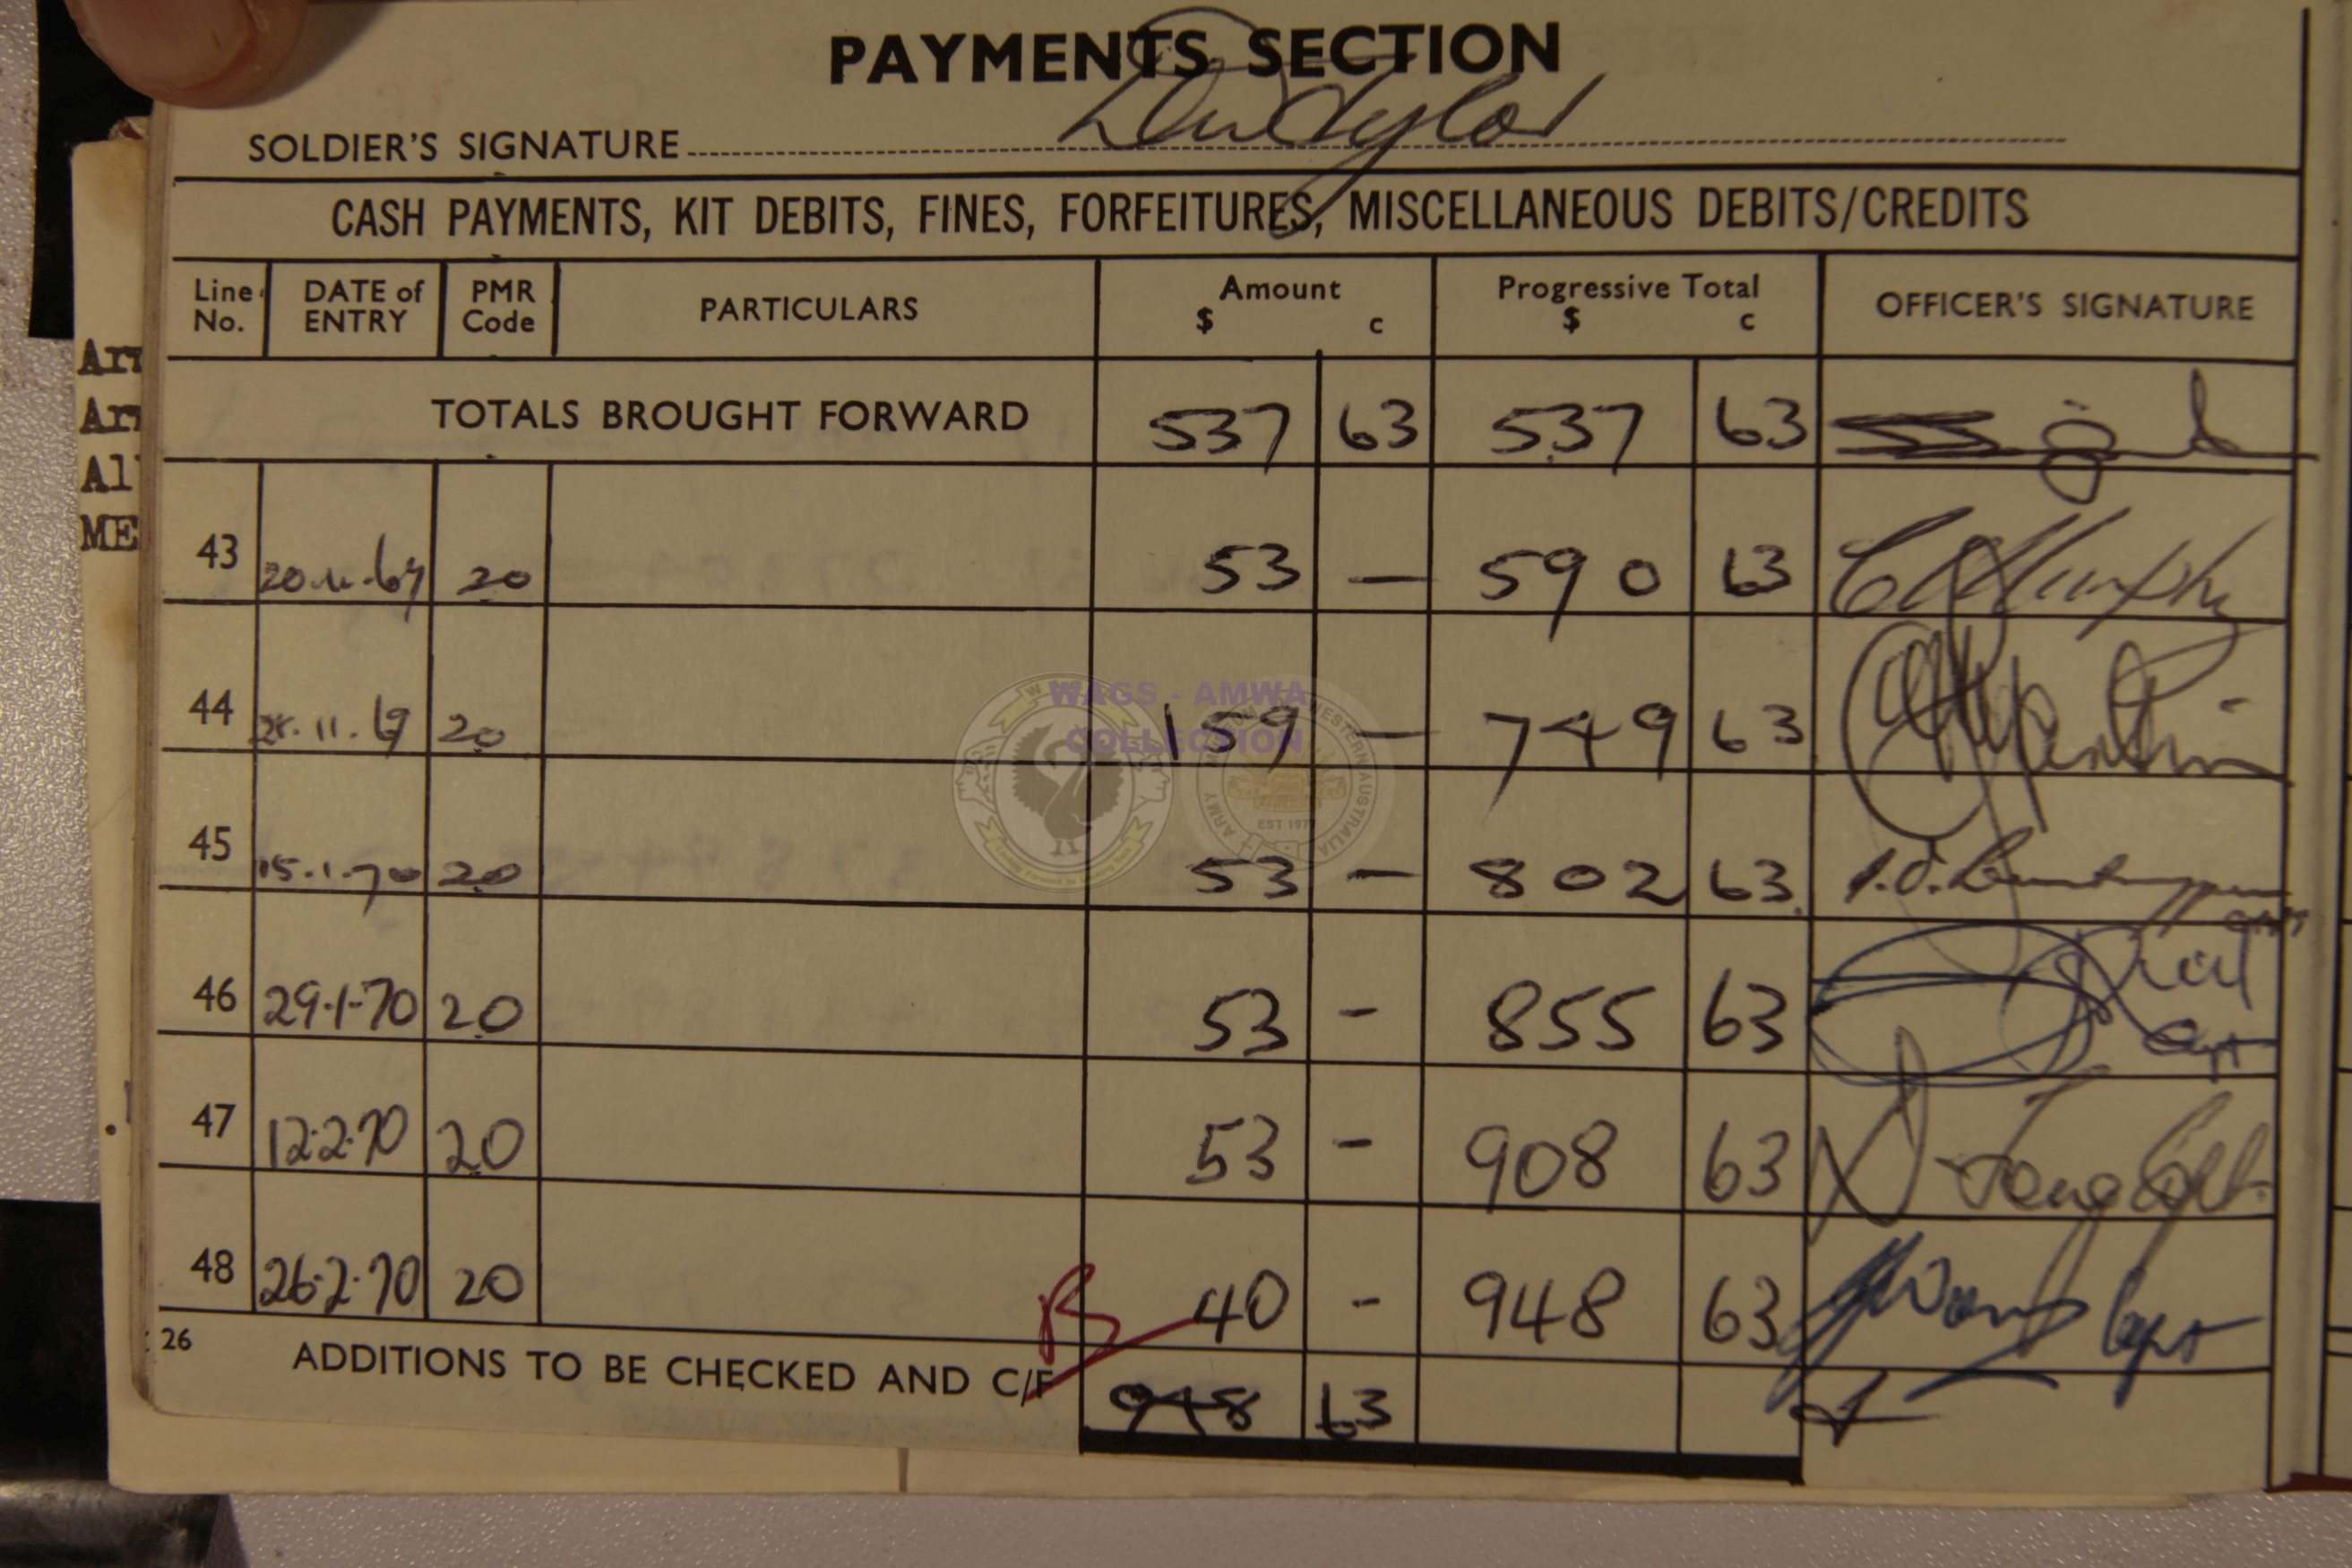 PAYMENTS SECTION
SOLDIER'S SIGNATURE
CASH PAYMENTS, KIT DEBITS, FINES, FORFEITURES, MISCELLANEOUS DEBITS/CREDITS
Line No. DATE of ENTRY PMR Code PARTICULARS Amount $ c Progressive Total $ c OFFICER'S SIGNATURE
TOTALS BROUGHT FORWARD 537 63 537 63
43 20 53 — 590 63
44 20 159 — 749 63
45 15.1.70 20 53 — 802 63
46 29.1.70 20 53 - 855 63
47 12.2.70 20 53 - 908 63
48 26.2.70 20 40 - 948 63
26
ADDITIONS TO BE CHECKED AND C/F 948 63
WAGS - AMWA
COLLECTION
EST 1977
Arm
Al
ME